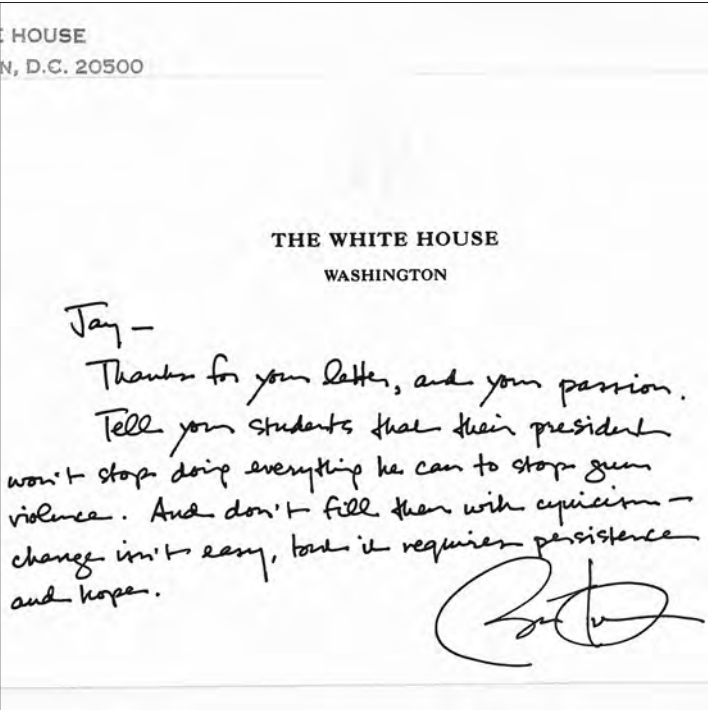 E HOUSE
N, D.C. 20500
THE WHITE HOUSE
WASHINGTON
Jay —
Thanks for your letter, and your passion.
Tell your students that their president
won't stop doing everything he can to stop gun
violence. And don't fill them with cynicism —
change isn't easy, but it requires persistence
and hope.